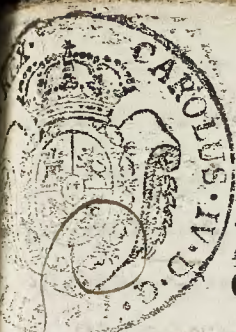 CAROLUS·IV·D·G·